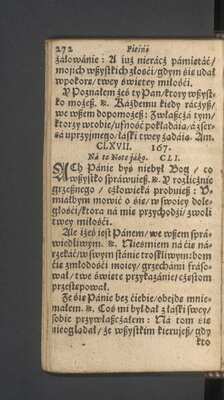 272 Pieśni
żałowánie: A iuż nierácz pámiętáć/
mojich wßystkich złości/ gdym się udał
w pokorę/ twey świętey miłości.
V Poznałem żeś ty Pan/ ktory wßyst-
ko możeß. ※ Każdemu kiedy ráczyß/
we wßem dopomożeß: Zwłaszczá tym/
ktorzy w tobie/ ufność pokłádáią/ á z ser-
cá uprzeymego/ łáski twey żądáią. Am.
CLXVII. 167.
Ná tę Notę jáko. CLI.
ACh Pánie byś niebył Bog/ co
wßystko spráwuieß. ※ V rozlicznie
grzeßnego/ człowieká probuieß: V-
miałbym mowić o się/ w swoiey doleg-
głości/ ktora ná mię przychodzi/ z woli
twey miłości.
Ale iżeś iest Pánem/ we wßem sprá-
wiedliwym. ※ Niesmiem ná cię ná-
rzekáć/ w swym stánie troskliwym: bom
cię zmłodości moiey/ grzechámi fráso-
wał/ twe święte przykazánie/ częstom
przestępował.
Żeś się Pánie bez ciebie/ obeydę mnie-
małem. ※ Coś mi był dał z łáski swey/
sobie przywłaszczałem: Ná tom się
nieoglądał/ że wßystkim kieruieß/ gdy
kto